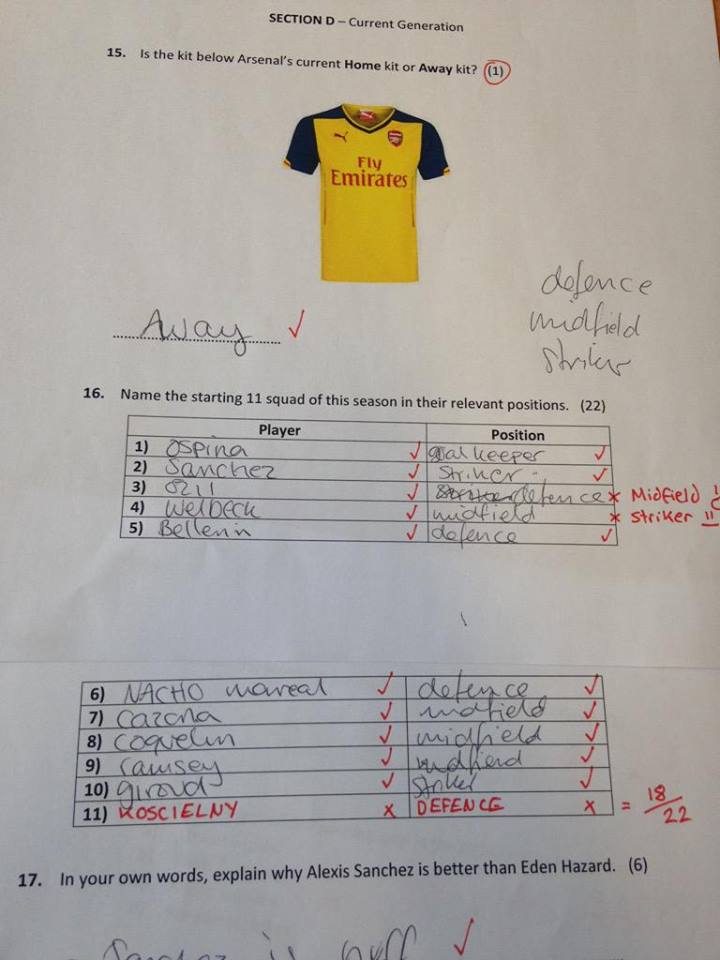 SECTION D – Current Generation
15. Is the kit below Arsenal's current Home kit or Away kit? (1)
Fly
Emirates
defence
midfield
striker
Away ✓
16. Name the starting 11 squad of this season in their relevant positions. (22)
Player Position
1) Ospina ✓ goalkeeper ✓
2) Sanchez ✓ striker ✓
3) Ozil ✓ defence x Midfield
4) Welbeck ✓ midfield x striker
5) Bellerin ✓ defence ✓
6) NACHO monreal ✓ defence ✓
7) cazorla ✓ midfield ✓
8) coquelin ✓ midfield ✓
9) ramsey ✓ midfield ✓
10) giroud ✓ striker ✓
11) KOSCIELNY x DEFENCE x = 18/22
17. In your own words, explain why Alexis Sanchez is better than Eden Hazard. (6)
Sanchez is buff ✓